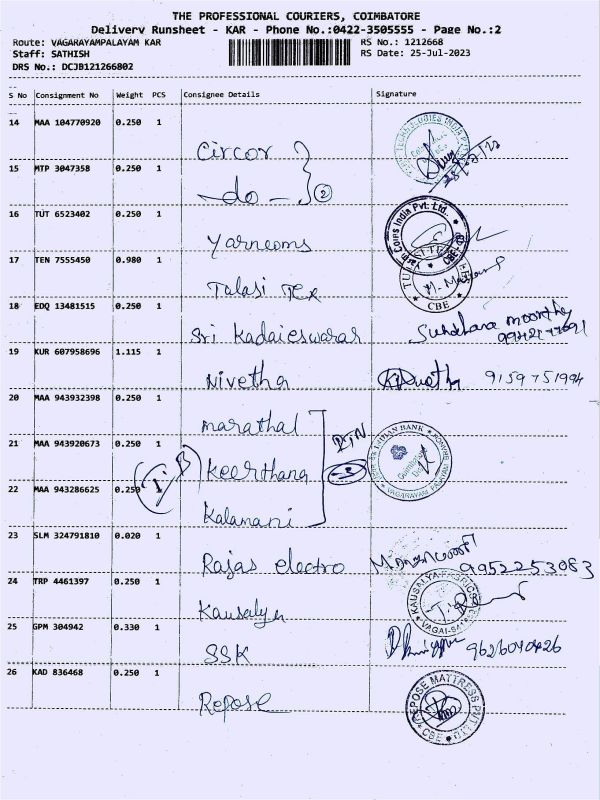 THE PROFESSIONAL COURIERS, COIMBATORE
Delivery Runsheet - KAR - Phone No.:0422-3505555 - Page No.:2
Route: VAGARAYAMPALAYAM KAR RS No.: 1212668
Staff: SATHISH RS Date: 25-Jul-2023
DRS No.: DCJB121266802
S No Consignment No Weight PCS Consignee Details Signature
14 MAA 104770920 0.250 1
Circor
15 MTP 3047358 0.250 1
-do- 2
16 TUT 6523402 0.250 1
Yarncoms
Yarn Coins India Pvt. Ltd. CBE
17 TEN 7555450 0.980 1
Tulasi Tex
CBE
18 EDQ 13481515 0.250 1
Sri Kadaieswarar
19 KUR 607958696 1.115 1
Nivetha 9159751994
20 MAA 943932398 0.250 1
Marathal
INDIAN BANK
21 MAA 943920673 0.250 1
IB Keerthana
VAGARAYAMPALAYAM
22 MAA 943286625 0.250 1
Kalamani
23 SLM 324791810 0.020 1
Rajas electro 9952253083
24 TRP 4461397 0.250 1
Kausalya
KAUSALYA FABRICS
25 GPM 304942 0.330 1
SSK 9626040426
26 KAD 836468 0.250 1
Repose
REPOSE MATTRESS PVT LTD CBE